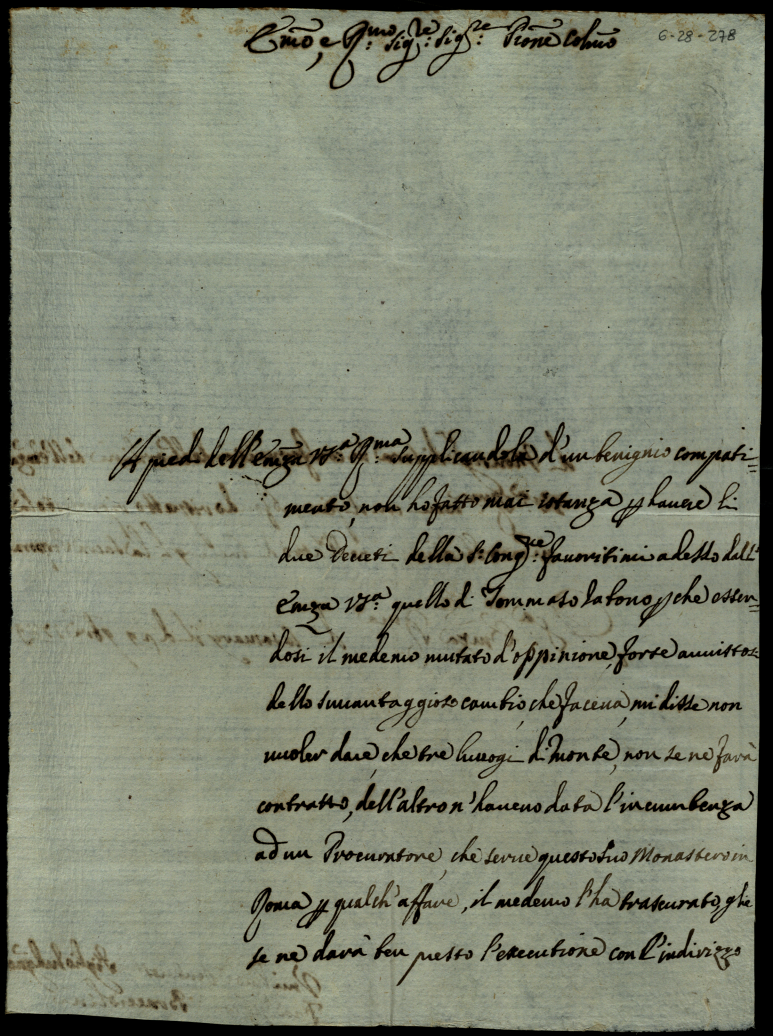 Em̃o, e R.mo Sig.re Sig.re Pr̃one Col̃mo
6-28-278
A piedi dell'Em̃za V.a R.ma supplicandola d'un benignio compati=
mento, non ho fatto mai istanza p havere li
due Decreti della S. Cong.ne favoritimi adesso dall'
Em̃za V.ra quello di Tommaso p che essen=
dosi il medemo mutato d'oppinione, forse avvistosi
dello suvantaggioso cambio, che faceva, mi disse non
vuoler dare, che tre luoogi di Monte, non se ne farà
contratto, dell'altro n'havevo data l'incumbenza
ad un Procuratore, che serve questo suo Monastero in
Roma p qualch'affare, il medemo l'ha trascurato, glie
se ne darà ben presto l'essecutione con l'indirizzo